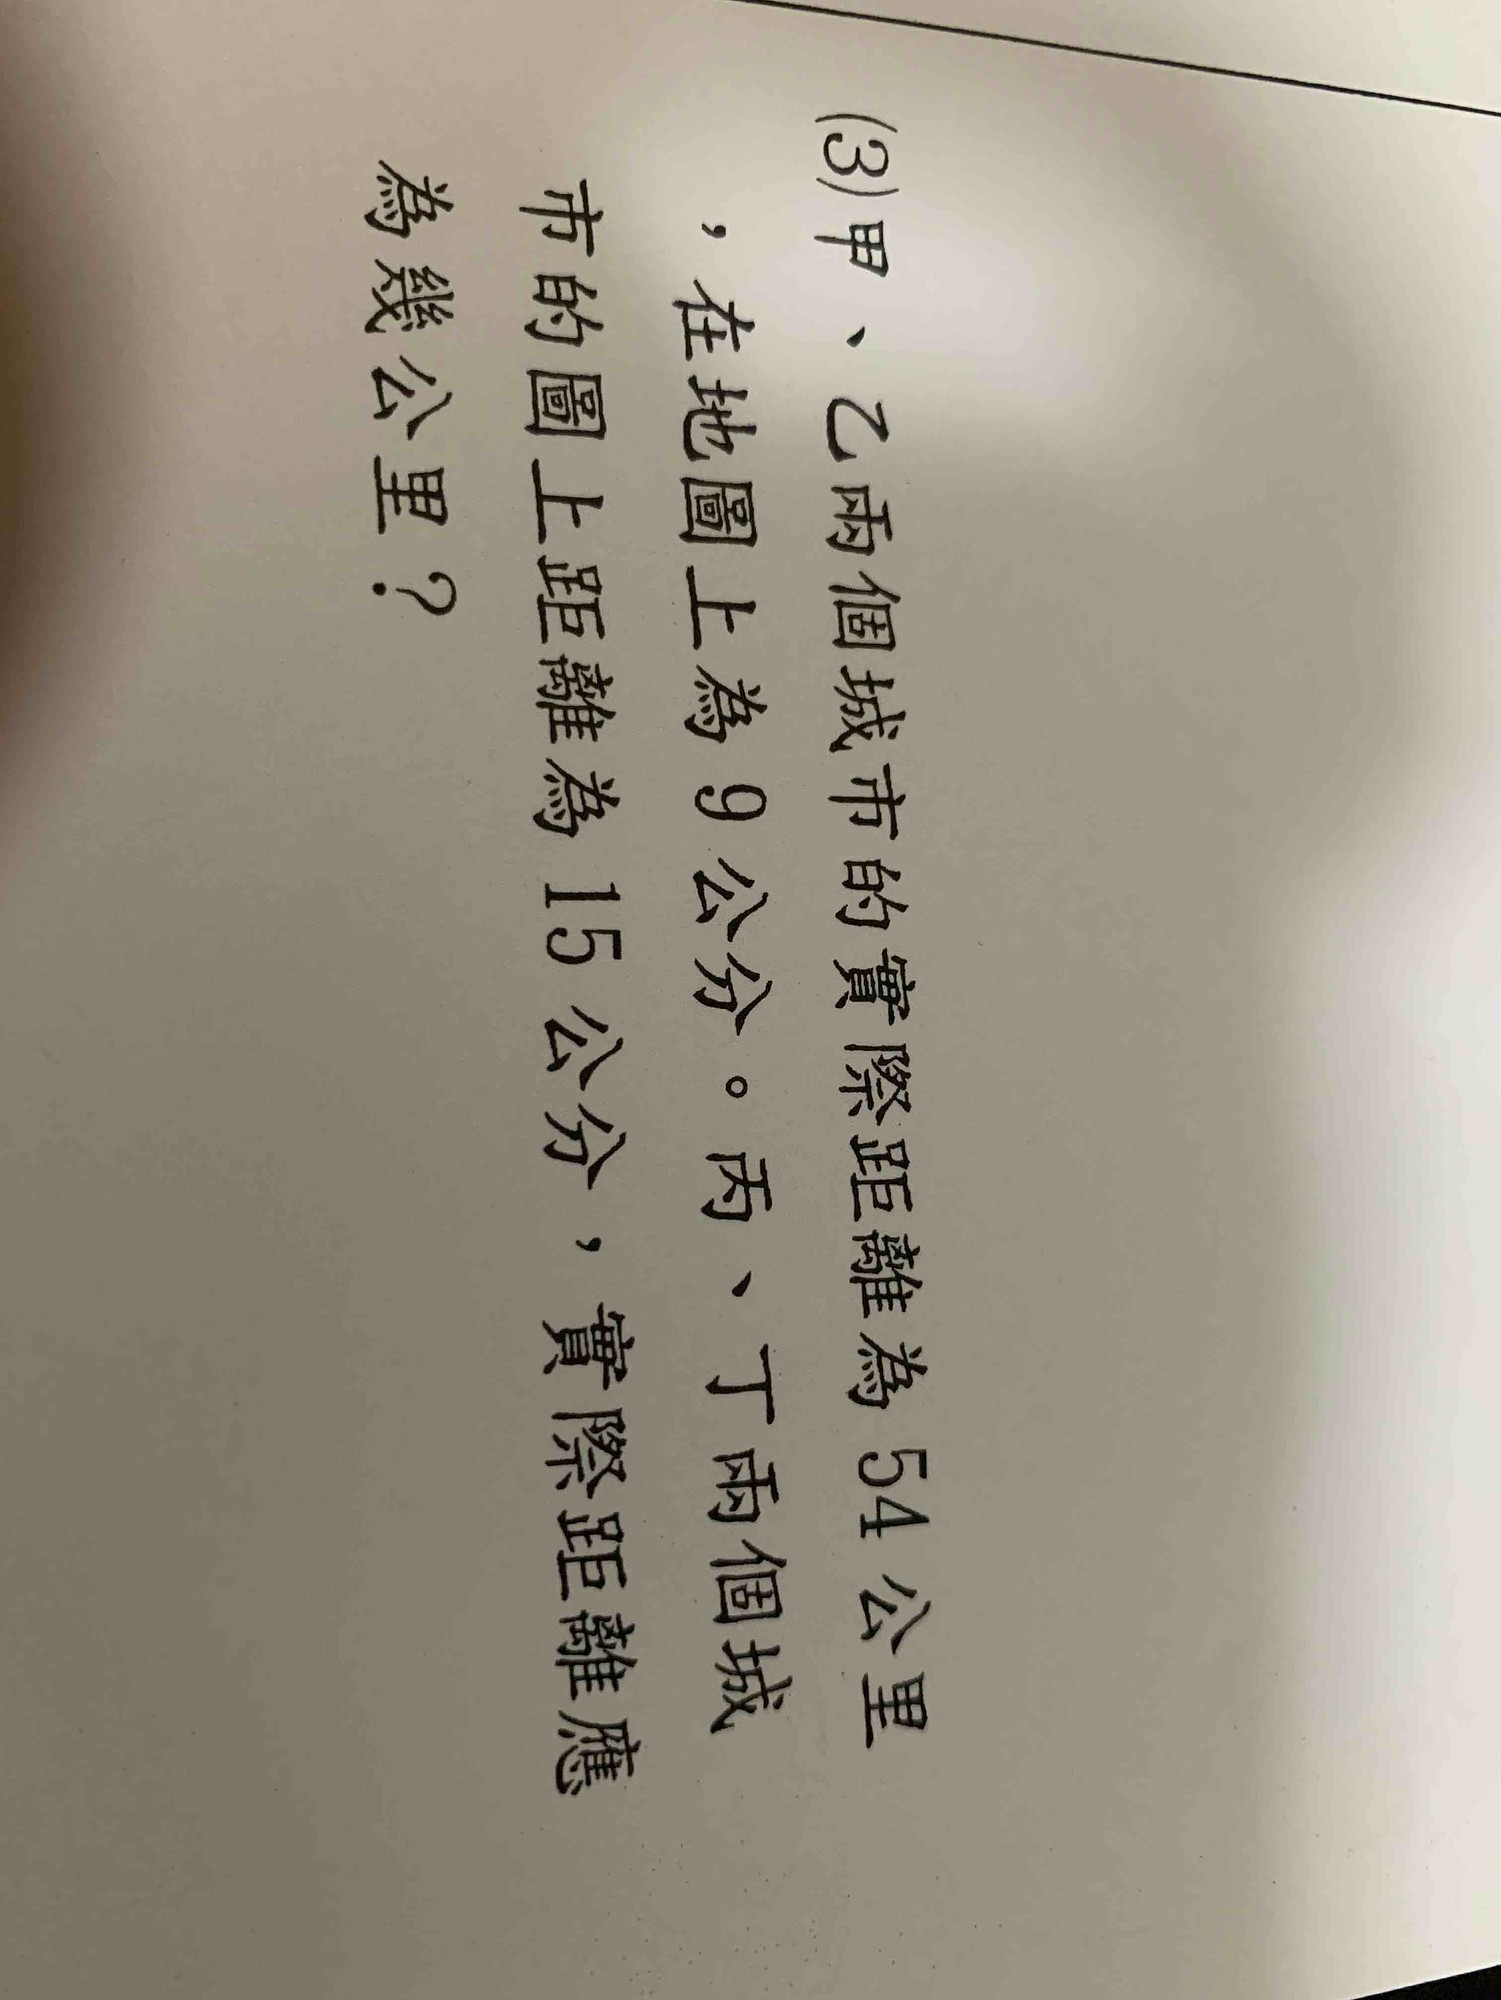 (3)甲、乙兩個城市的實際距離為 54 公里
，在地圖上為 9 公分。丙、丁兩個城
市的圖上距離為 15 公分，實際距離應
為幾公里？